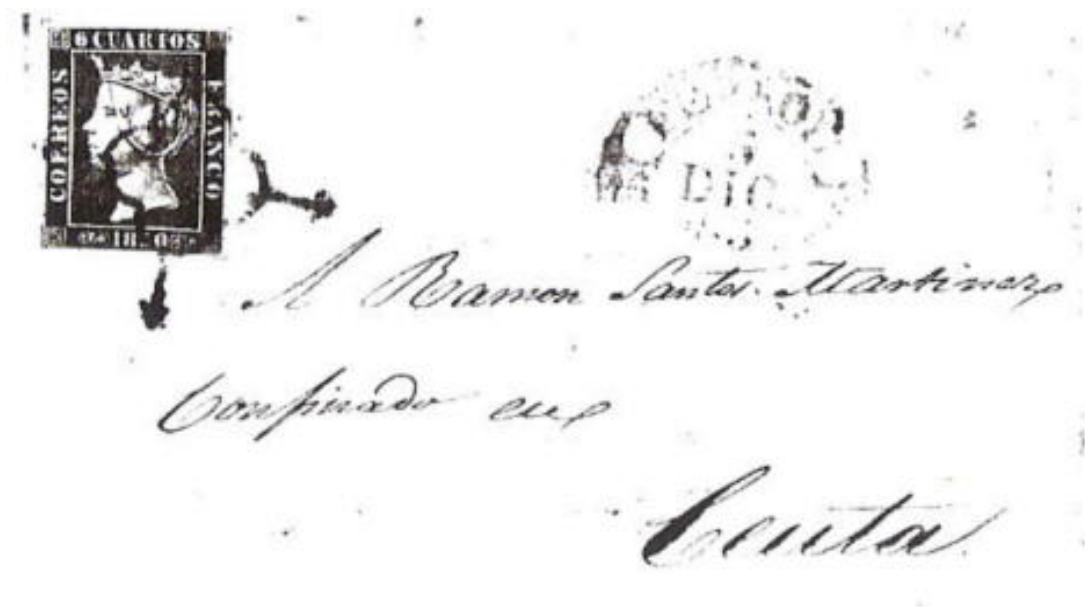 6 CUARTOS
CORREOS
FRANCO
DIC
A Ramon Santos Martinez
Confinado en
Ceuta